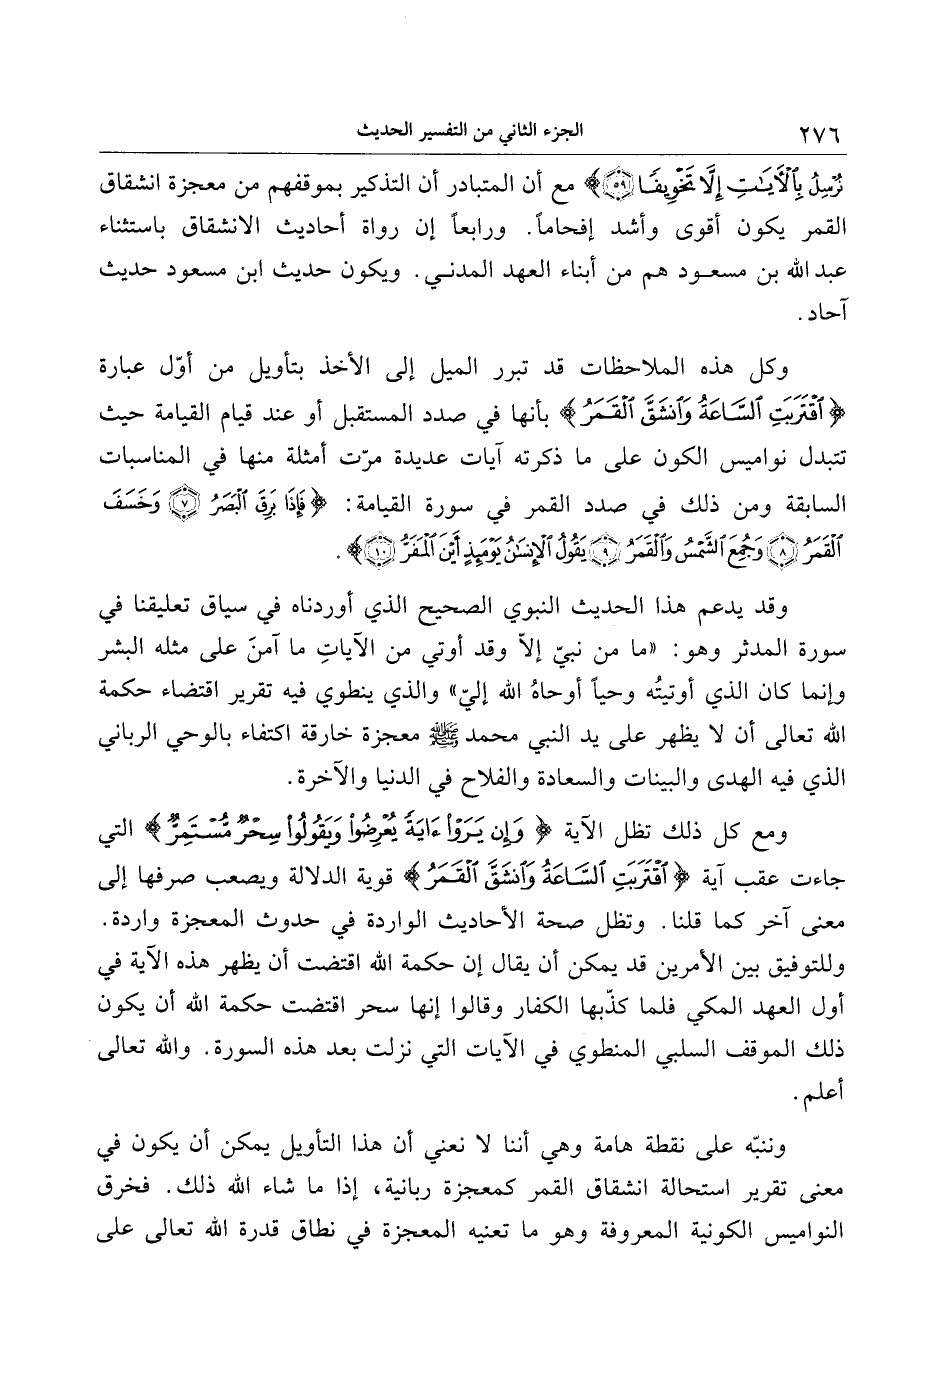 ٢٧٦ الجزء الثاني من التفسير الحديث
نُرْسِلُ بِٱلْأَيَٰتِ إِلَّا تَخْوِيفًا ﴿٥٩﴾﴾ مع أن المتبادر أن التذكير بموقفهم من معجزة انشقاق
القمر يكون أقوى وأشد إفحاماً. ورابعاً إن رواة أحاديث الانشقاق باستثناء
عبد الله بن مسعود هم من أبناء العهد المدني. ويكون حديث ابن مسعود حديث
آحاد.
وكل هذه الملاحظات قد تبرر الميل إلى الأخذ بتأويل من أوّل عبارة
﴿ ٱقْتَرَبَتِ ٱلسَّاعَةُ وَٱنشَقَّ ٱلْقَمَرُ ﴾ بأنها في صدد المستقبل أو عند قيام القيامة حيث
تتبدل نواميس الكون على ما ذكرته آيات عديدة مرّت أمثلة منها في المناسبات
السابقة ومن ذلك في صدد القمر في سورة القيامة: ﴿ فَإِذَا بَرِقَ ٱلْبَصَرُ ﴿٧﴾ وَخَسَفَ
ٱلْقَمَرُ ﴿٨﴾ وَجُمِعَ ٱلشَّمْسُ وَٱلْقَمَرُ ﴿٩﴾ يَقُولُ ٱلْإِنسَٰنُ يَوْمَئِذٍ أَيْنَ ٱلْمَفَرُّ ﴿١٠﴾﴾.
وقد يدعم هذا الحديث النبوي الصحيح الذي أوردناه في سياق تعليقنا في
سورة المدثر وهو: «ما من نبيّ إلاّ وقد أوتي من الآياتِ ما آمنَ على مثله البشر
وإنما كان الذي أوتيتُه وحياً أوحاهُ الله إليّ» والذي ينطوي فيه تقرير اقتضاء حكمة
الله تعالى أن لا يظهر على يد النبي محمد ﷺ معجزة خارقة اكتفاء بالوحي الرباني
الذي فيه الهدى والبينات والسعادة والفلاح في الدنيا والآخرة.
ومع كل ذلك تظل الآية ﴿ وَإِن يَرَوْا۟ ءَايَةً يُعْرِضُوا۟ وَيَقُولُوا۟ سِحْرٌ مُّسْتَمِرٌّ ﴾ التي
جاءت عقب آية ﴿ ٱقْتَرَبَتِ ٱلسَّاعَةُ وَٱنشَقَّ ٱلْقَمَرُ ﴾ قوية الدلالة ويصعب صرفها إلى
معنى آخر كما قلنا. وتظل صحة الأحاديث الواردة في حدوث المعجزة واردة.
وللتوفيق بين الأمرين قد يمكن أن يقال إن حكمة الله اقتضت أن يظهر هذه الآية في
أول العهد المكي فلما كذّبها الكفار وقالوا إنها سحر اقتضت حكمة الله أن يكون
ذلك الموقف السلبي المنطوي في الآيات التي نزلت بعد هذه السورة. والله تعالى
أعلم.
وننبّه على نقطة هامة وهي أننا لا نعني أن هذا التأويل يمكن أن يكون في
معنى تقرير استحالة انشقاق القمر كمعجزة ربانية، إذا ما شاء الله ذلك. فخرق
النواميس الكونية المعروفة وهو ما تعنيه المعجزة في نطاق قدرة الله تعالى على